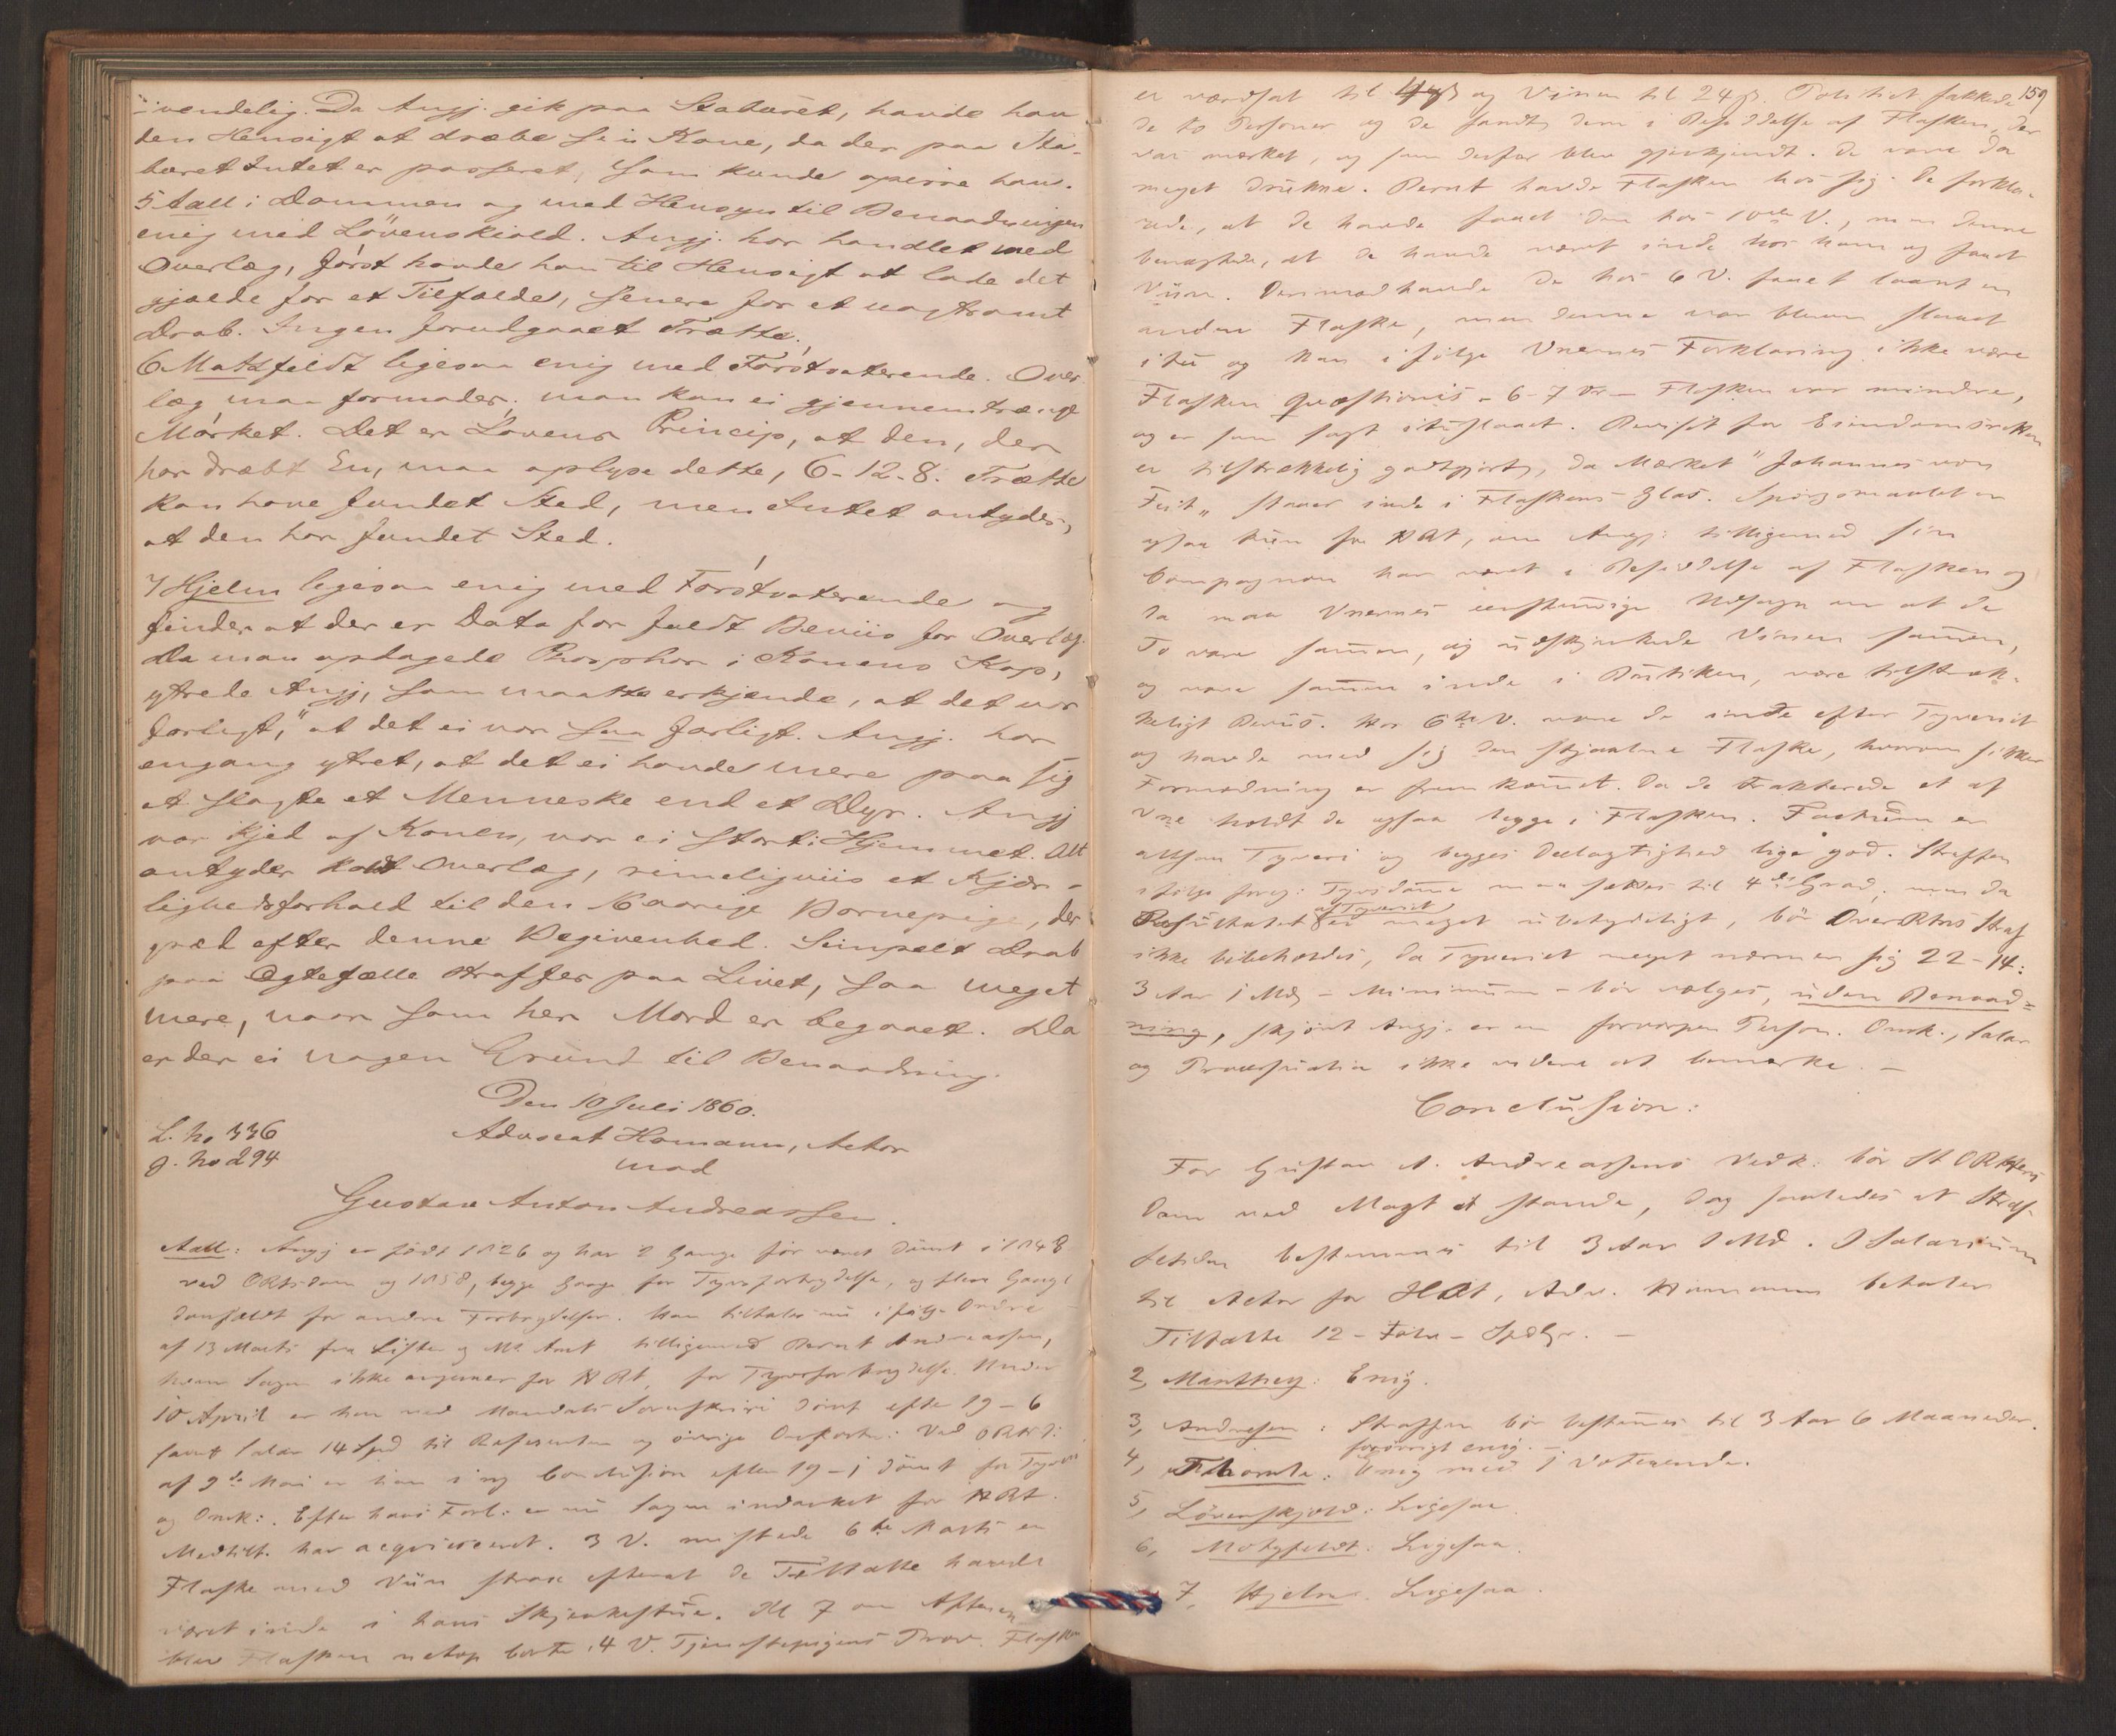 ivendelig. Da Angj. gik paa Staburet, havde han
den Hensigt at dræbe sin Kone, da der paa Sta-
buret Intet er passeret, som kunde opirre ham.
5 Aall i Dommen og med Hensyn til Benaadningen
enig med Lövenskiold. Angj. har handlet med
Overlæg, först havde han til Hensigt at lade det
gjælde for et Tilfælde, senere for et uagtsomt
Drab. Ingen forudgaaet Trætte.
6 Motzfeldt ligesaa enig med Förstvoterende. Over
læg maa formodes; man kan ei gjennemtrænge
Mörket. Det er Lovens Princip, at den, der
har dræbt En, maa oplyse dette, 6-12-8. Trætte
kan have fundet Sted, men Intet antyder,
at den har fundet Sted.
7 Hjelm ligesaa enig med Förstvoterende og
finder at der er Data for fuldt Beviis for Overlæg.
Da man opdagede Phosphor i Konens Kop,
ytrede Angj, som maatte erkjende, at det var
farligt, "at det ei var saa farligt. Angj. har
engang ytret, at det ei havde mere paa sig
at slagte et Menneske end et Dyr. Angj
var kjed af Konen, var ei stort i Hjemmet. Alt
antyder koldt Overlæg, rimeligviis et Kjær-
lighedsforhold til den 16aarige Barnepige, der
græd efter denne Begivenhed. Simpelt Drab
paa Ægtefælle straffes paa Livet, saa meget
mere, naar som her Mord er begaaet. Da
er der ei nogen Grund til Benaadning.
Den 10 Juli 1860.
L. No 336
Advocat Homann, Actor
g. No 294
mod
Gustav Anton Andreassen.
Aall: Angj er födt 1826 og har 2 Gange för været dömt i 1848
ved ORtsdom og 1858, begge Gange for Tyvsforbrydelse, og flere Gange
domfældt for andre Forbrydelser. Han tiltales nu ifölge Ordre
af 13 Marts fra Lister og Ml Amt tilligemed Bernt Andreassen,
hvem Sagen ikke angaaer for HRt, for Tyvsforbrydelse. Under
10 April er han ved Mandals Sorenskriveri dömt efter 19-6
samt Salær 14 Spd til Referenten og övrige Omkostn: Ved ORtsD:
af 9de Mai er han i ny Conclusion efter 19-1 dömt for Tyveri
og Omk: Efter hans Forl: er nu Sagen indanket for HRt.
Medtilt. har acqviesceret. 3 V. mistede 6te Marts en
Flaske med Viin strax efterat de Tiltalte havde
været inde i hans Skjenkestue. Kl 7 om Aftenen
blev Flasken netop borte. 4 V. Tjenestepigens Prov. Flasken
159
er værdsat til 4 β og Vinen til 24 β. Politiet pakkede
de to Personer og de fandt dem i Besiddelse af Flasken, der
var mærket, og som derfor blev gjenkjendt. De vare da
meget drukne. Bernt havde Flasken hos sig. De forkla-
rede, at de havde faaet den hos 10de V., men denne
benægtede, at de havde været inde hos ham og faaet
Viin. Derimod havde de hos 6 V. faaet laant en
anden Flaske, men denne var bleven slaaet
itu og kan ifölge Vnernes Forklaring ikke være
Flasken quæstionis - 6-7 Vr - Flasken var mindre,
og er som sagt ituslaaet. Beviset for Eiendomsretten
er tilstrækkelig godtgjort, da Mærket "Johannes von
Feit" staaer inde i Flaskens Glas. Spörgsmaalet er
ogsaa kun for HRt, om Angj: tilligemed sin
Compagnon har været i Besiddelse af Flasken og
da maa Vnernes eenstemmige Udsagn om at de
To vare sammen, og udskjenkede Vinen sammen,
og vare sammen inde i Boutiken, være tilstræk-
keligt Beviis. Hos 6te V. vare de inde efter Tyveriet
og havde med sig den stjaalne Flaske, hvorom sikker
Formodning er fremkommet. Da de trakterede et af
Vne holdt de ogsaa begge i Flasken. Factum er
altsaa Tyveri og begges Deelagtighed lige god. Straffen
ifölge foreg: Tyvsdomme maa sættes til 4de Grad; men da
Resultatet af Tyveriet er meget ubetydeligt, bör OverRtns Straf
ikke bibeholdes, da Tyveriet meget nærmer sig 22-14:
3 Aar 1 Md - Minimum - bör vælges, uden Benaad=
ning, skjönt Angj. er en forvorpen Person. Omk., Salær
og Procesfuta ikke videre at bemærke. -
Conclusion:
For Gustav A. Andreassens Vedk: bör St ORtens
Dom ved Magt at stande, dog saaledes at Straf-
fetiden bestemmes til 3 Aar 1 Md. I Salarium
til Actor for HRt, Adv. Homann betaler
Tiltalte 12 - Tolv - Spdlr. -
2, Manthey: Enig.
3, Andresen: Straffen bör bestemmes til 3 Aar 6 Maaneder.
forövrigt enig. -
4, Thomle: Enig med 1 Voterende.
5, Lövenskjold: Ligesaa.
6, Motzfeldt: Ligesaa.
7, Hjelm. Ligesaa.